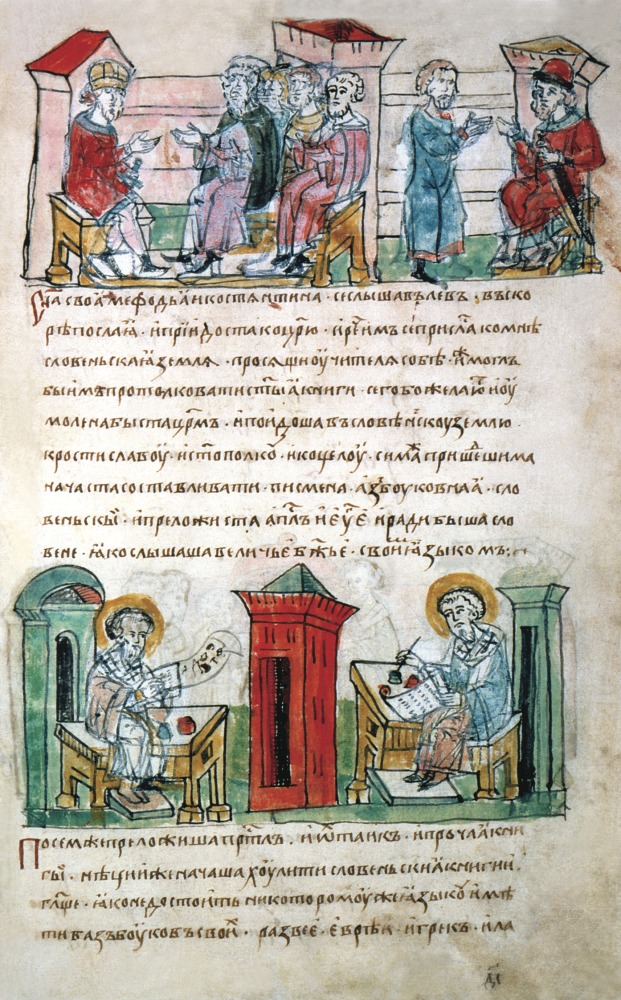 сꙗ своꙗ мефодьꙗ и костѧнтина · се слышавъ левъ · въско
рѣ послаꙗ · и придоста ко црю · и рече имъ се присла ко мнѣ
словеньскаꙗ землѧ · просѧщи оучителѧ собѣ · иже моглъ
бы имъ протолковати ст҃ыꙗ книги · сего бо желають и оу
молена быста црм҃ъ · и поидоша въ словѣньскоу землю ·
к ростиславоу · и ст҃ополкоу · и коцелоу · сима же пришедшима
начаста съставливати · писмена · азъбоуковнаꙗ · сло
веньскы · и преложиста ап҃лъ и еу҃є · и ради быша сло
вене · ꙗко слышаша величье бж҃ье · своимь ꙗзыкомъ :·
Посем же преложиша пртлъ · и ѡктаикъ · и прочаꙗ кни
гы · нѣции же начаша хоулити словеньскиꙗ книги ·
гл҃ще · ꙗко не достоить никоторомоу же ꙗзыкоу имѣ
ти баззъбоуковъ своихъ · развее · еврѣи · и грекъ · и ла